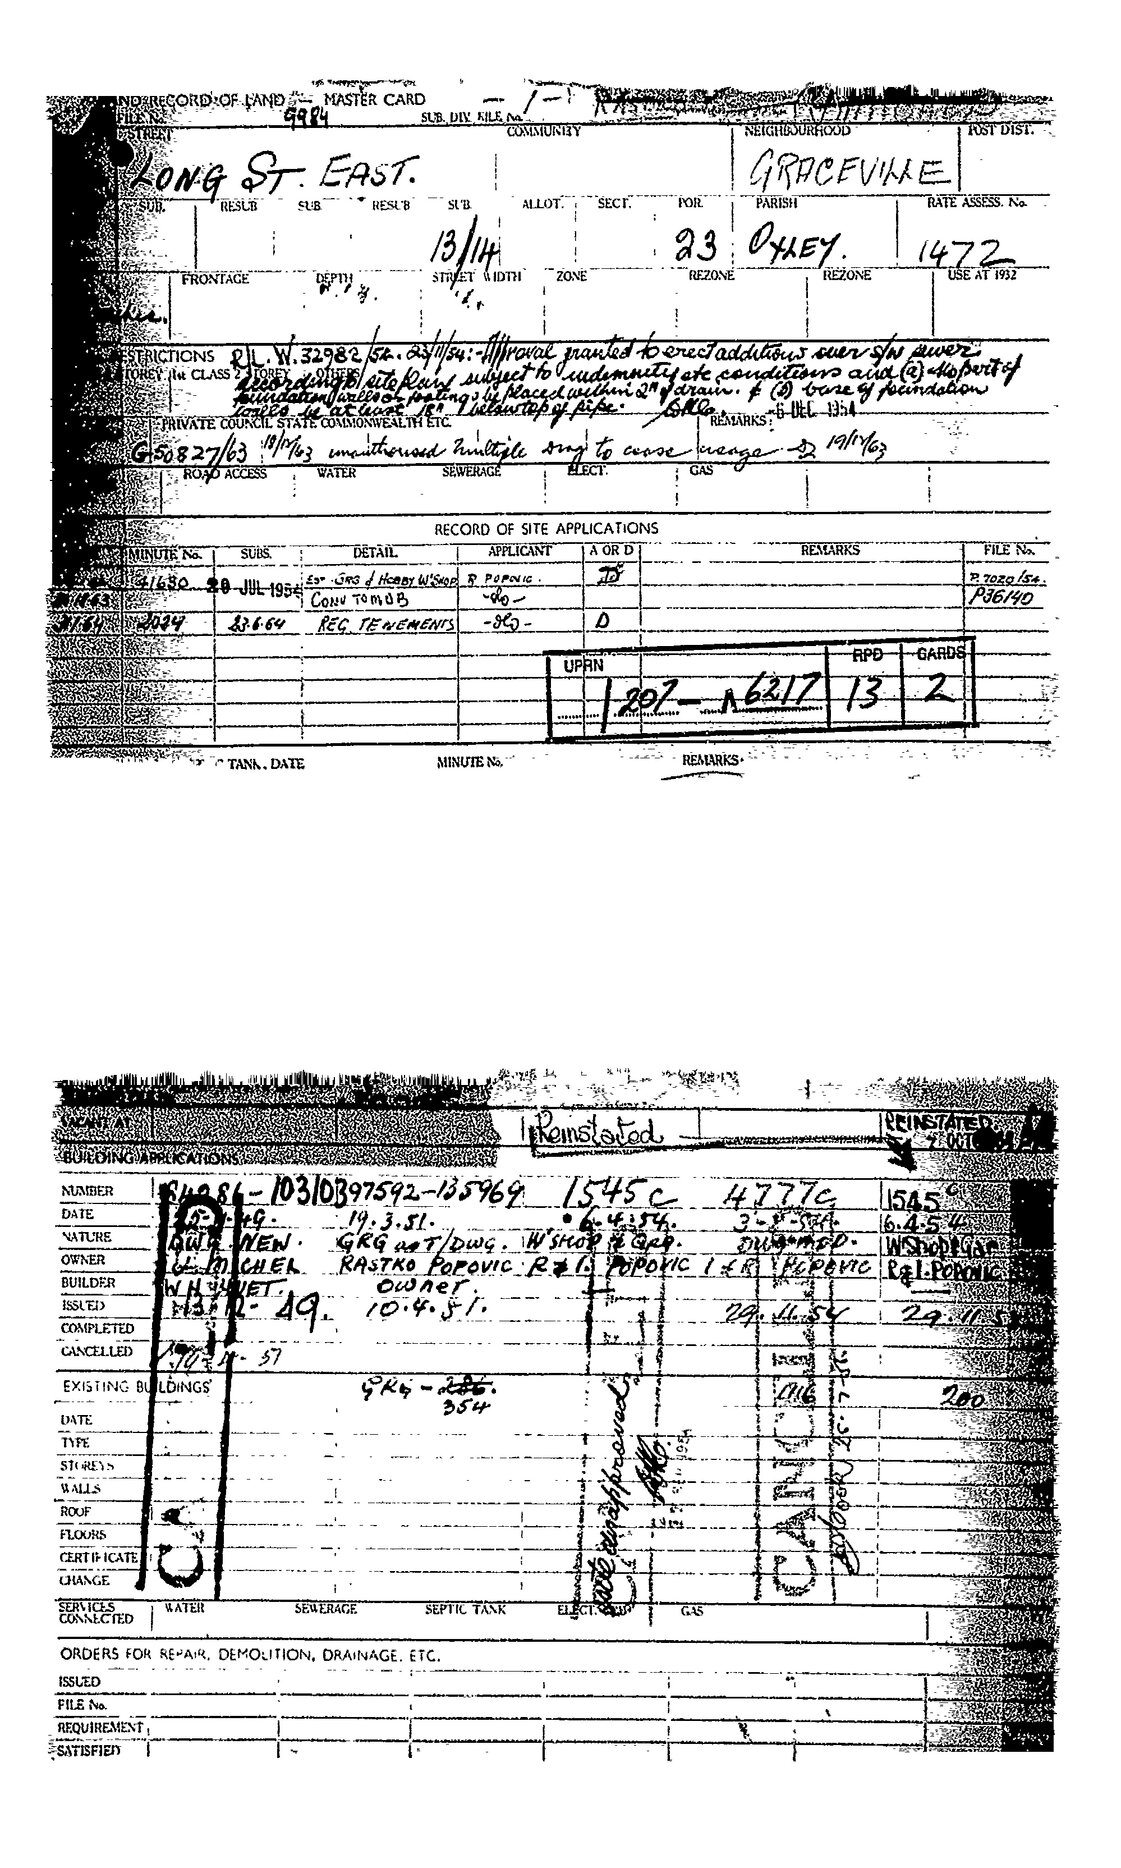 ND RECORD OF LAND — MASTER CARD — 1 —
FILE No. 9984 SUB. DIV. FILE No.
STREET COMMUNITY NEIGHBOURHOOD POST DIST.
LONG ST. EAST. GRACEVILLE
SUB. RESUB SUB. RESUB SUB. ALLOT. SECT. POR. PARISH RATE ASSESS. No.
13/14 23 OXLEY. 1472
FRONTAGE DEPTH STREET WIDTH ZONE REZONE REZONE USE AT 1932
ESTRICTIONS R/L.W.32982/54. 23/11/54:- Approval granted to erect additions over S/W sewer
STOREY 1st CLASS 2 STOREY OTHERS according to site plan subject to indemnity etc conditions and (a) No part of
foundation walls or footings be placed within 2" of drain. & (b) base of foundation
walls be at least 18" below top of pipe. -6 DEC 1954
PRIVATE COUNCIL STATE COMMONWEALTH ETC. REMARKS:
G50827/63 18/11/63 unauthorised multiple dwg to cease usage 19/11/63
ROAD ACCESS WATER SEWERAGE ELECT. GAS
RECORD OF SITE APPLICATIONS
MINUTE No. SUBS. DETAIL APPLICANT A OR D REMARKS FILE No.
41630 20 JUL 1954 EST GRG & HOBBY W'SHOP R POPOVIC. P.7020/54.
CONV TO MDB -do- P36140
2024 23.6.64 REG. TENEMENTS -do- D
UPRN RPD CARDS
1207 — 6217 13 2
TANK, DATE MINUTE No. REMARKS
VACANT AT Reinstated REINSTATED
7 OCT
BUILDING APPLICATIONS
NUMBER 103103 97592-135969 1545c 4777c 1545c
DATE 19.3.51. 6.4.54. 6.4.54
NATURE DWG NEW. GRG as T/DWG. W'SHOP & GRG. W'Shop & Gar
OWNER MICHEL RASTKO POPOVIC R & I. POPOVIC I & R POPOVIC R & I. POPOVIC
BUILDER OWNER.
ISSUED 49. 10.4.51. 29.11.54 29.11.54
COMPLETED
CANCELLED
EXISTING BUILDINGS GRG - 286. 200
354
DATE
TYPE
STOREYS
WALLS
ROOF
FLOORS
CERTIFICATE
CHANGE
Site disapproved
CANCELLED 25-7-56
SERVICES CONNECTED WATER SEWERAGE SEPTIC TANK ELECT. GAS
ORDERS FOR REPAIR, DEMOLITION, DRAINAGE, ETC.
ISSUED
FILE No.
REQUIREMENT
SATISFIED